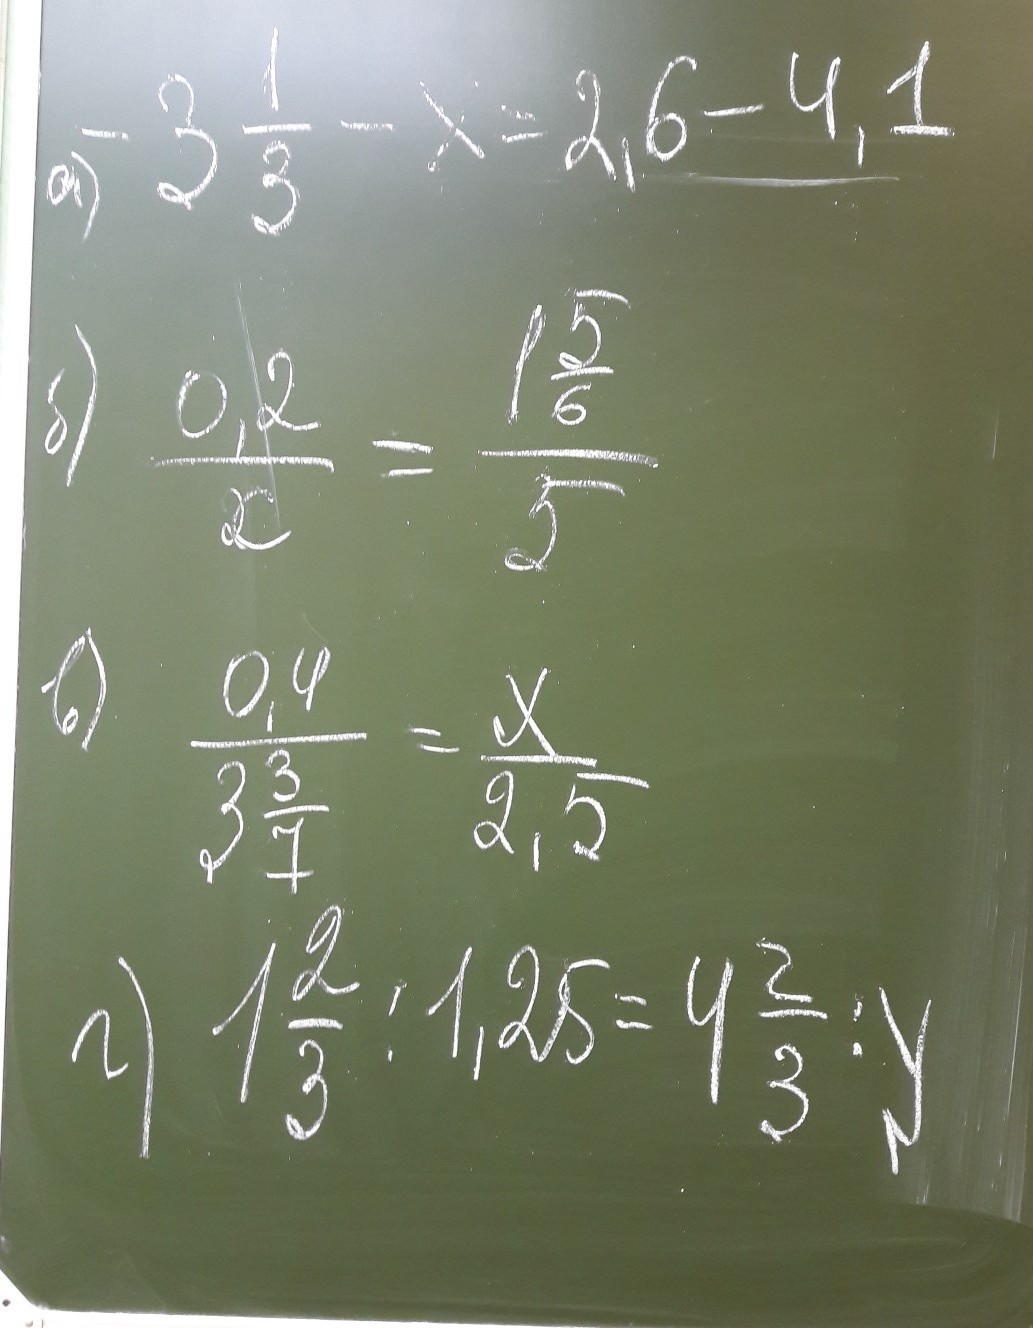 а) -3 1/3 - x = 2,6 - 4,1
б) 0,2/x = 1 5/6/5
в) 0,4/3 3/7 = x/2,5
г) 1 2/3 : 1,25 = 4 2/3 : y